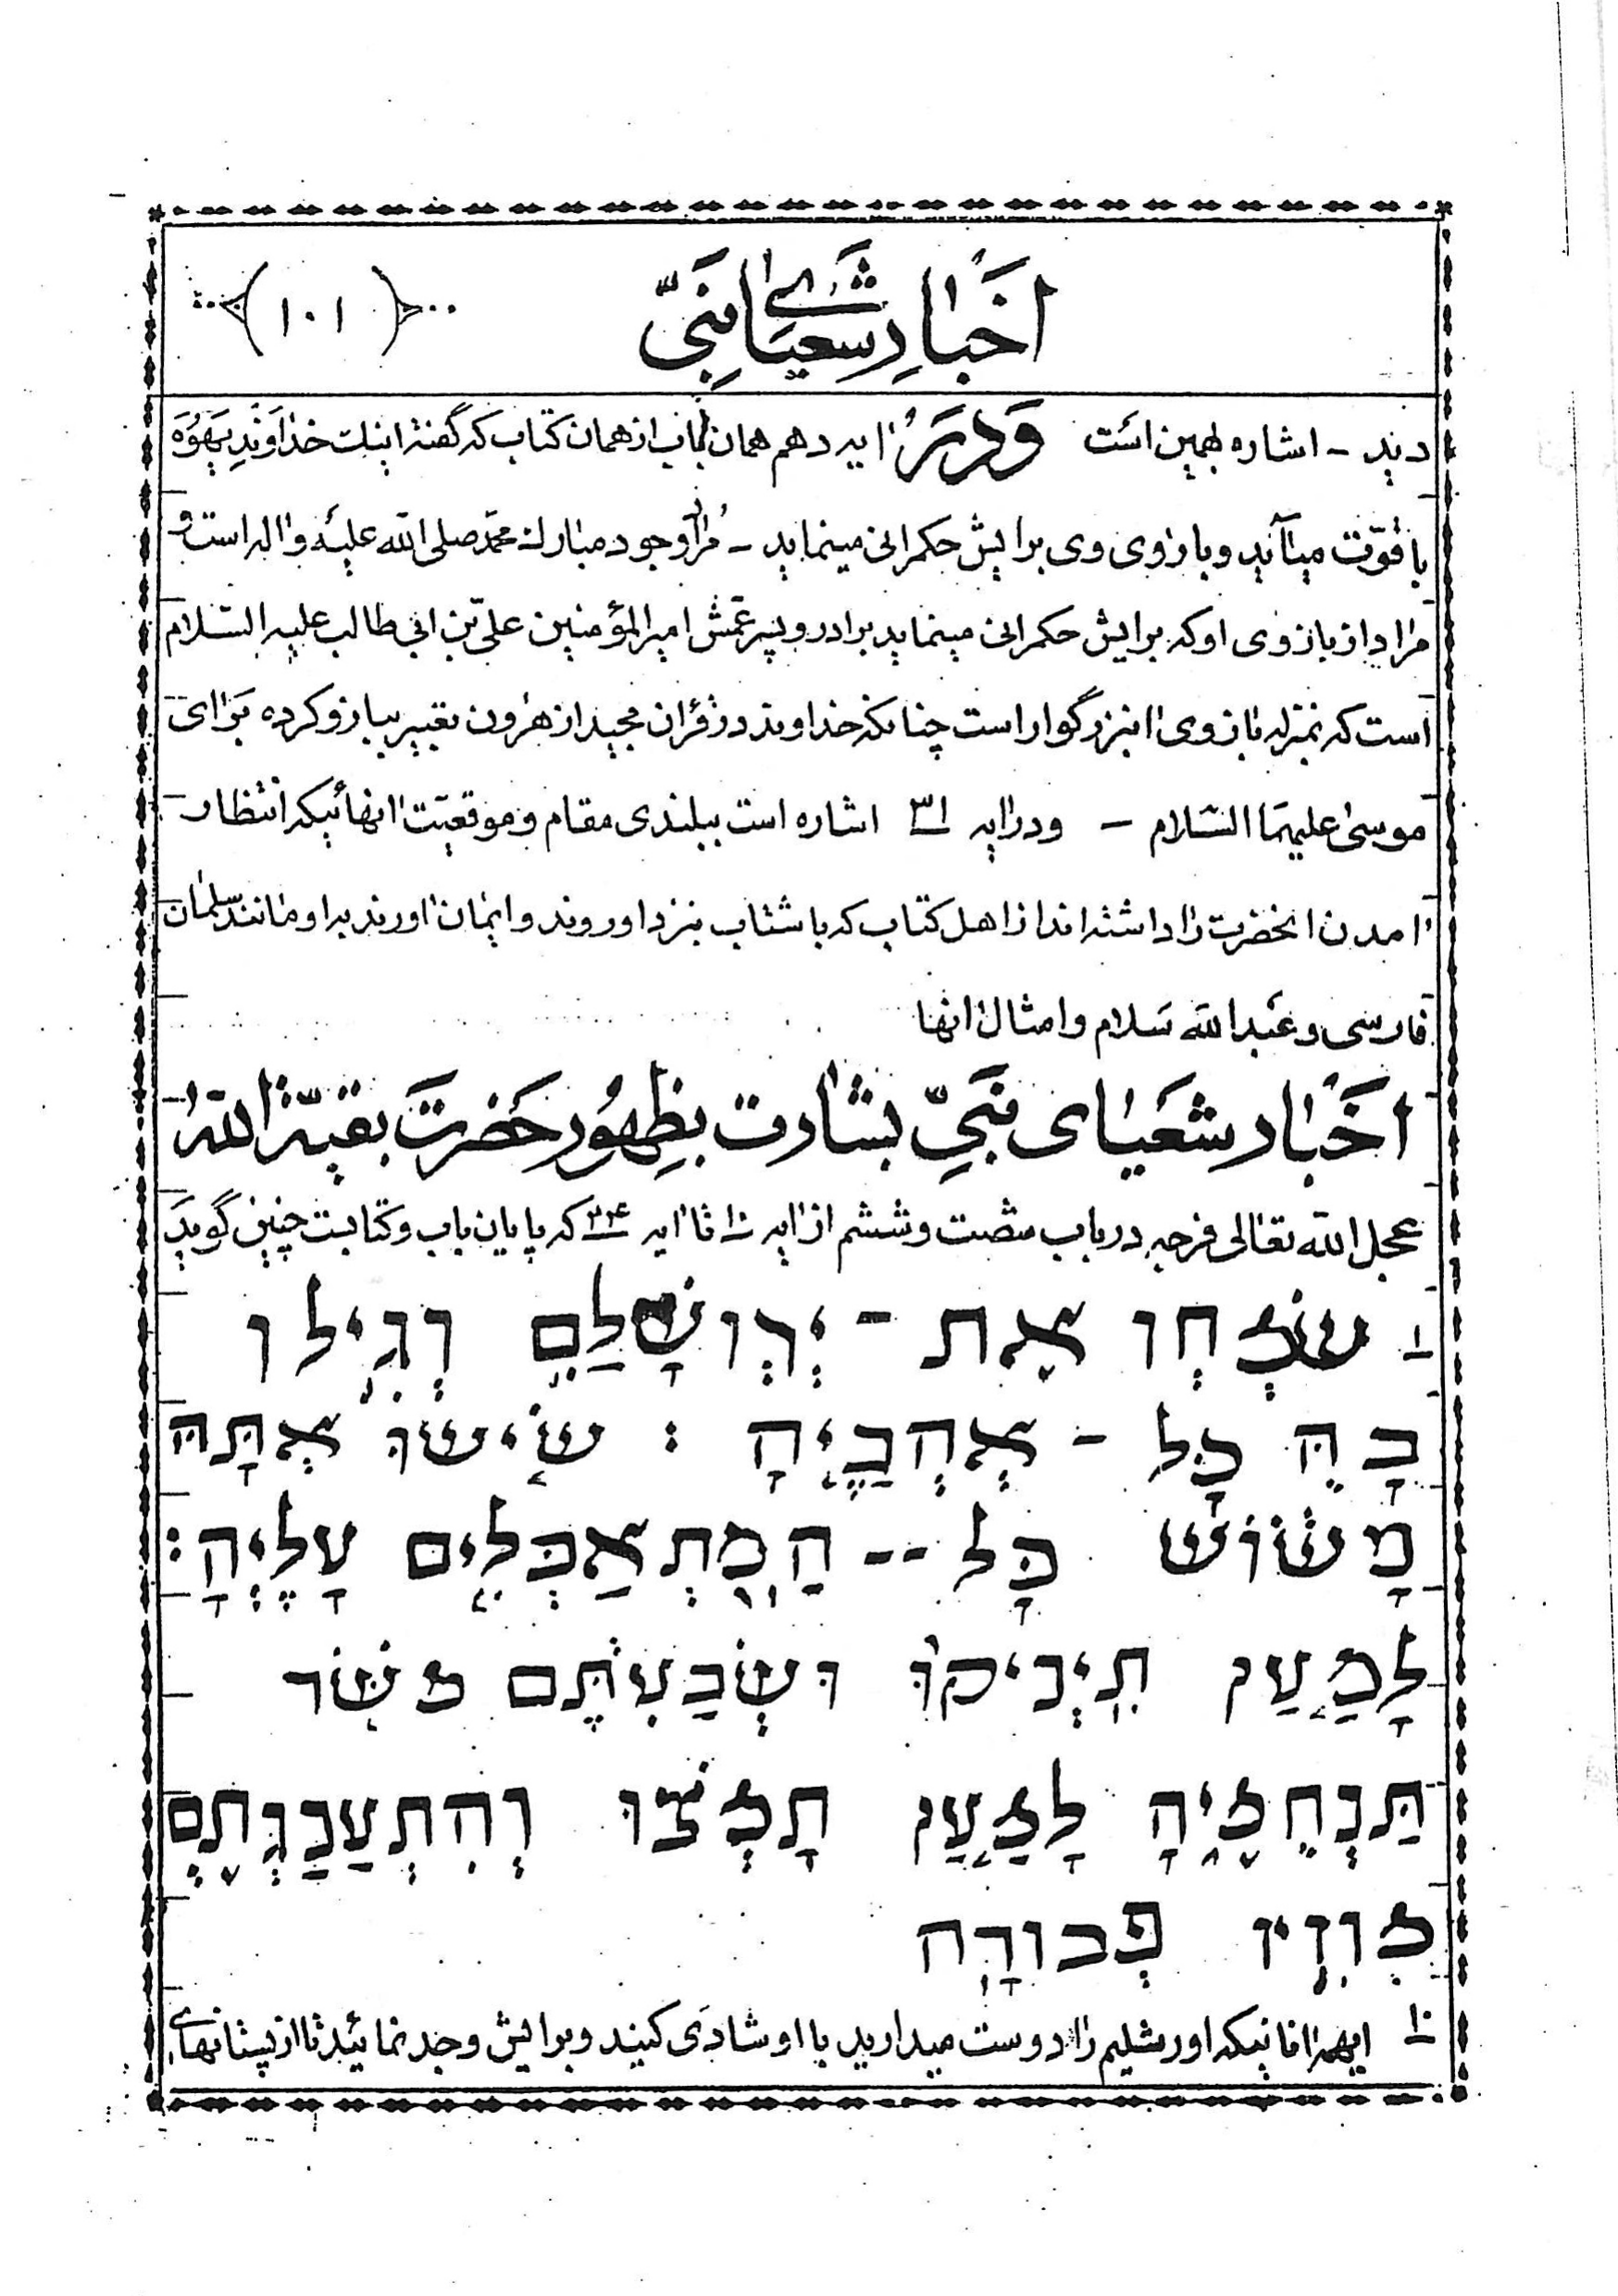 اخبار شعیای نبی
(۱۰۱)
دید - اشاره بهمین است و در آیه دهم همان باب از همان کتاب که گفته اینک خداوند یهوه
با قوت میآید و بازوی وی برایش حکمرانی مینماید - مراد وجود مبارک محمد صلی الله علیه واله است و
مراد از بازوی او که برایش حکمرانی مینماید برادر و پسر عمش امیر المؤمنین علی بن ابی طالب علیه السلام
است که بمنزله بازوی انبزرگوار است چنانکه خداوند در قرآن مجید از هرون تعبیر ببازو کرده برای
موسی علیهما السلام - و در ایه ۳۱ اشاره است ببلندی مقام و موقعیت انهائیکه انتظار
امدن انحضرت را داشته اند از اهل کتاب که با شتاب بنزد او روند و ایمان اورند به او مانند سلمان
فارسی و عبدالله سلام و امثال انها
اخبار شعیای نبی بشارت بظهور حضرت بقیة الله
عجل الله تعالی فرجه در باب شصت و ششم از ایه ۱۰ تا ایه ۲۴ که پایان باب و کتابست چنین گوید
۱۰ שִׂמְחְוּ אֶת - יְרְוּשָׁלַםִ וְגִילוּ
בָהּ כָּל - אְהֲבֶיהָ : שִׂישׂוּ אִתָּהּ
מָשׂוֹשׂ כָּל -- הַמִּתְאַבְּלִים עָלֶיְהָ:
לְמַעַן תִּיְנִיקוּ וּשְׂבַעְתֶּם מִשֹּׁד
תַּנְחֻמֶיהָ לְמַעַן תָּמֹצּוּ וְהִתְעַנַּגְתֶּם
מִזִּיז כְּבוֹדָהּ
۱۰ ایهمه انانیکه اورشلیم را دوست میدارید با او شادی کنید و برایش وجد نمائید تا از پستانهای